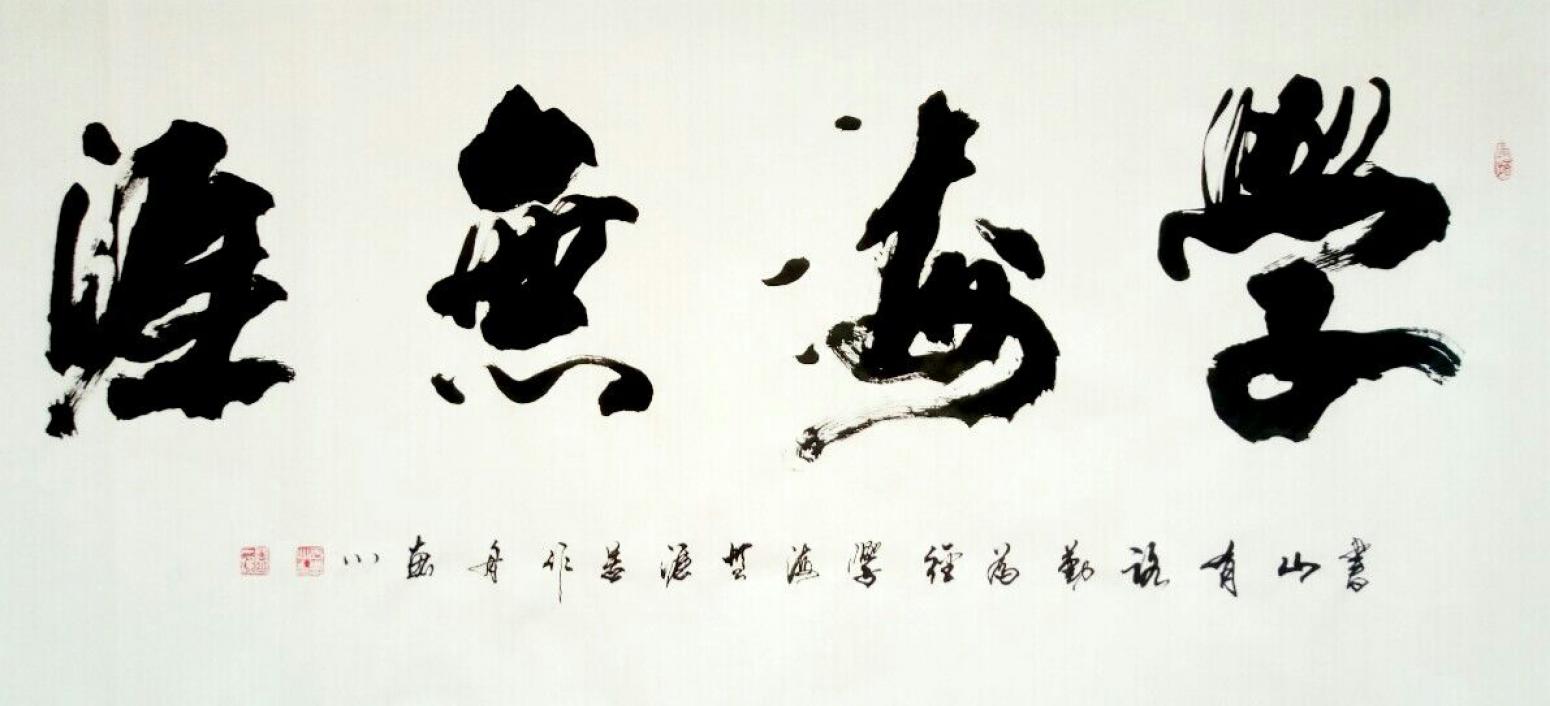 學海無涯
書山有路勤為徑學海無涯苦作舟